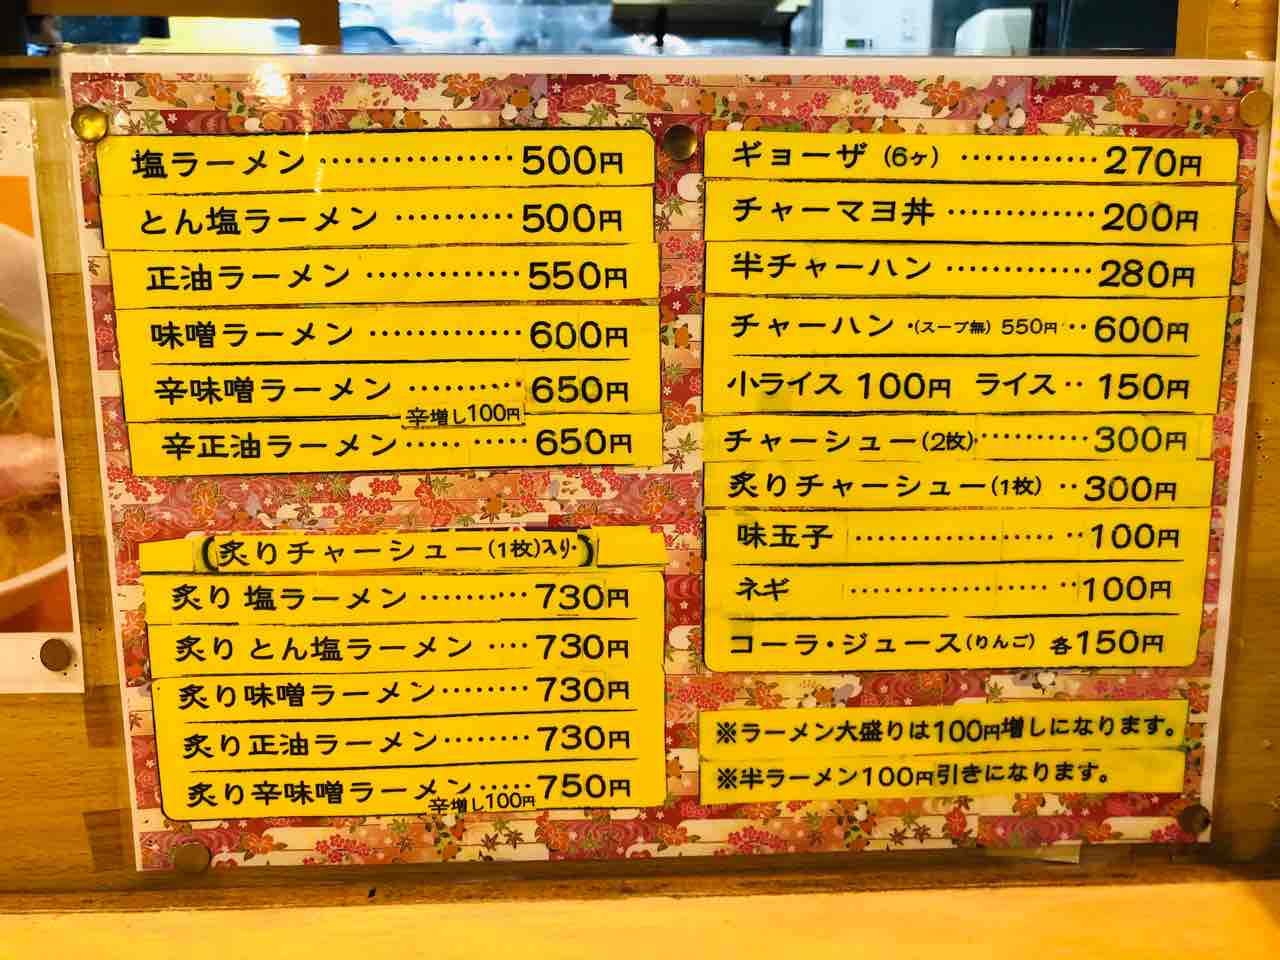 塩ラーメン ・・・・・・・・・・・・・・・・ 500円
とん塩ラーメン ・・・・・・・・・・ 500円
正油ラーメン ・・・・・・・・・・・・・ 550円
味噌ラーメン ・・・・・・・・・・・・・ 600円
辛味噌ラーメン ・・・・・・・・・・ 650円
辛増し100円
辛正油ラーメン・・・・・ ・・・・・・ 650円
(炙りチャーシュー(1枚)入り・)
炙り 塩ラーメン ・・・・・・・・・・ 730円
炙り とん塩ラーメン ・・・・ 730円
炙り味噌ラーメン・・・・・・・・ 730円
炙り正油ラーメン・・・・・・・・ 730円
炙り辛味噌ラーメン・・・・・・ 750円
辛増し100円
ギョーザ (6ヶ) ・・・・・・・・・・・・ 270円
チャーマヨ丼 ・・・・・・・・・・・・・ 200円
半チャーハン ・・・・・・・・・・・・・ 280円
チャーハン ・(スープ無) 550円 ・・ 600円
小ライス 100円 ライス・・ 150円
チャーシュー(2枚)・・・・・・・・・・ 300円
炙りチャーシュー(1枚) ・・300円
味玉子 ・・・・・・・・・・・・・・・・・・ 100円
ネギ ・・・・・・・・・・・・・・・・・・ 100円
コーラ・ジュース(りんご) 各150円
※ラーメン大盛りは100円増しになります。
※半ラーメン100円引きになります。